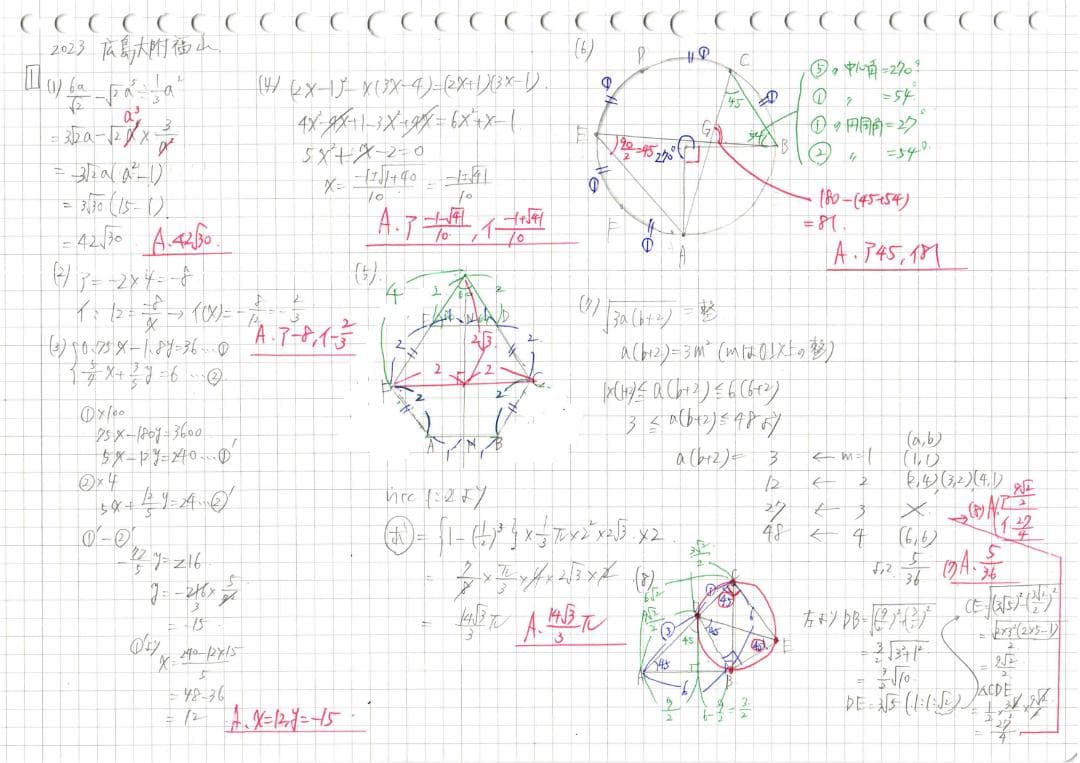 2023 広島大附福山
1
(1) 6a/√2 - √2a⁵ ÷ 1/3a²
= 3√2a - √2a⁵ × 3/a²
a³
= -3√2a(a²-1)
= 3√30(15-1)
= 42√30
A. 42√30
(2) ア = -2×4 = -8
イ: 12 = -8/x → イ(x) = -8/12 = -2/3
A. ア-8, イ-2/3
(3) { 0.75x-1.8y=36 …①
5/4x+3/5y=6 …②
①×100
75x-180y=3600
5x-12y=240 …①'
②×4
5x+12/5y=24 …②'
①'-②'
-72/5y=216
y=-216×5/72
3
=-15
①'より
x=240-12×15/5
=48-36
=12
A. x=12, y=-15
(4) (2x-1)²-x(3x-4)=(2x+1)(3x-1)
4x²-4x+1-3x²+4x=6x²+x-1
5x²+x-2=0
x=-1±√1+40/10 = -1±√41/10
A. ア -1-√41/10, イ -1+√41/10
(5)
4
2
2
60
E
N
D
2√3
2
2
2
2
F
C
2
2
A
N
B
1
1
hrc 1:2より
求={1-(1/2)³}×1/3π×2²×2√3×2
=7/8×π/3×4×2√3×2
=14√3/3π
A. 14√3/3 π
(6)
D
①
C
①
45
E
G
54
B
90/2=45
270°
①
F
①
A
⑤の中心角=270°
① 〃 =54°
①の円周角=27°
② 〃 =54°
180-(45+54)
=81
A. ア45, イ81
(7) √3a(b+2) = 整
a(b+2)=3m² (mは0以上の整)
1×(1+2)≦a(b+2)≦6(6+2)
3≦a(b+2)≦48より
(a,b)
a(b+2)= 3 ← m=1 (1,1)
12 ← 2 (2,4),(3,2),(4,1)
27 ← 3 ×
48 ← 4 (6,6)
よって 5/36
(7) A. 5/36
(8)
3√2/2
6√2
9√2/2
C
①
45
D
③
45
6
45
45
E
45
A
6
B
9/2
6-9/2=3/2
左よりDB=√(9/2)²+(3/2)²
=3/2√3²+1²
=3/2√10
DE=3√5 (1:1:√2)
CE=√(3√5)²-(3√2/2)²
=√2×3²(2×5-1)/2
=9√2/2
△CDE
=1/2×3√2/2×9√2/2
=27/4
(8) A. ア 9√2/2
イ 27/4